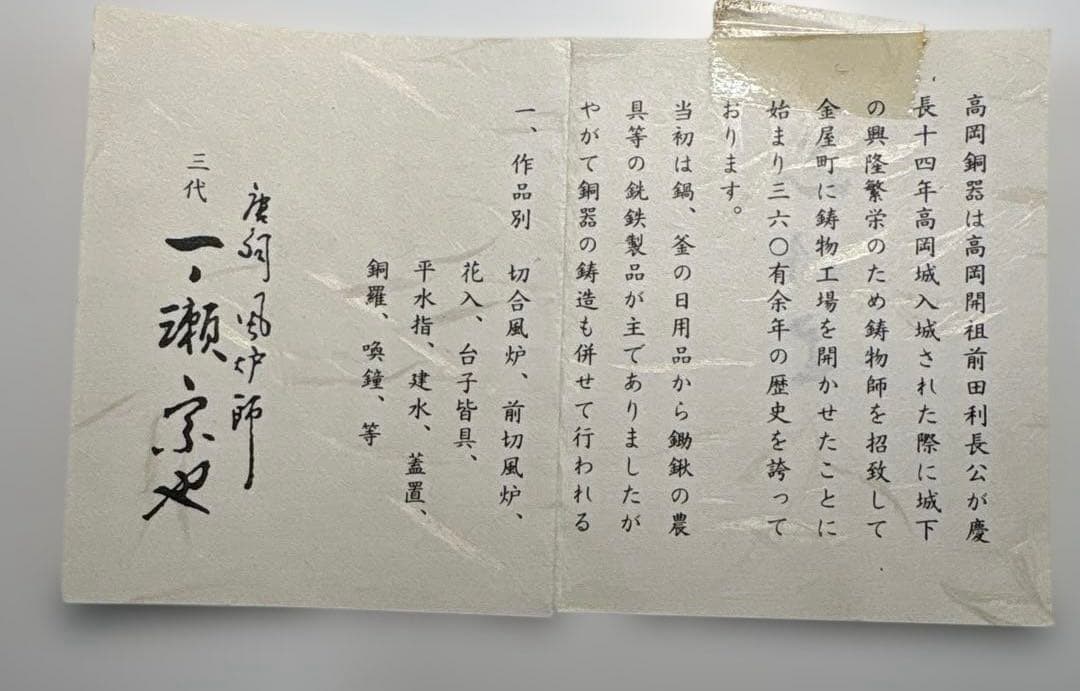 高岡銅器は高岡開祖前田利長公が慶
長十四年高岡城入城された際に城下
の興隆繁栄のため鋳物師を招致して
金屋町に鋳物工場を開かせたことに
始まり三六〇有余年の歴史を誇って
おります。
当初は鍋、釜の日用品から鋤鍬の農
具等の銑鉄製品が主でありましたが
やがて銅器の鋳造も併せて行われる
一、作品別 切合風炉、前切風炉、
花入、台子皆具、
平水指、建水、蓋置、
銅羅、喚鐘、等
唐銅風炉師
三代 一ノ瀬宗也